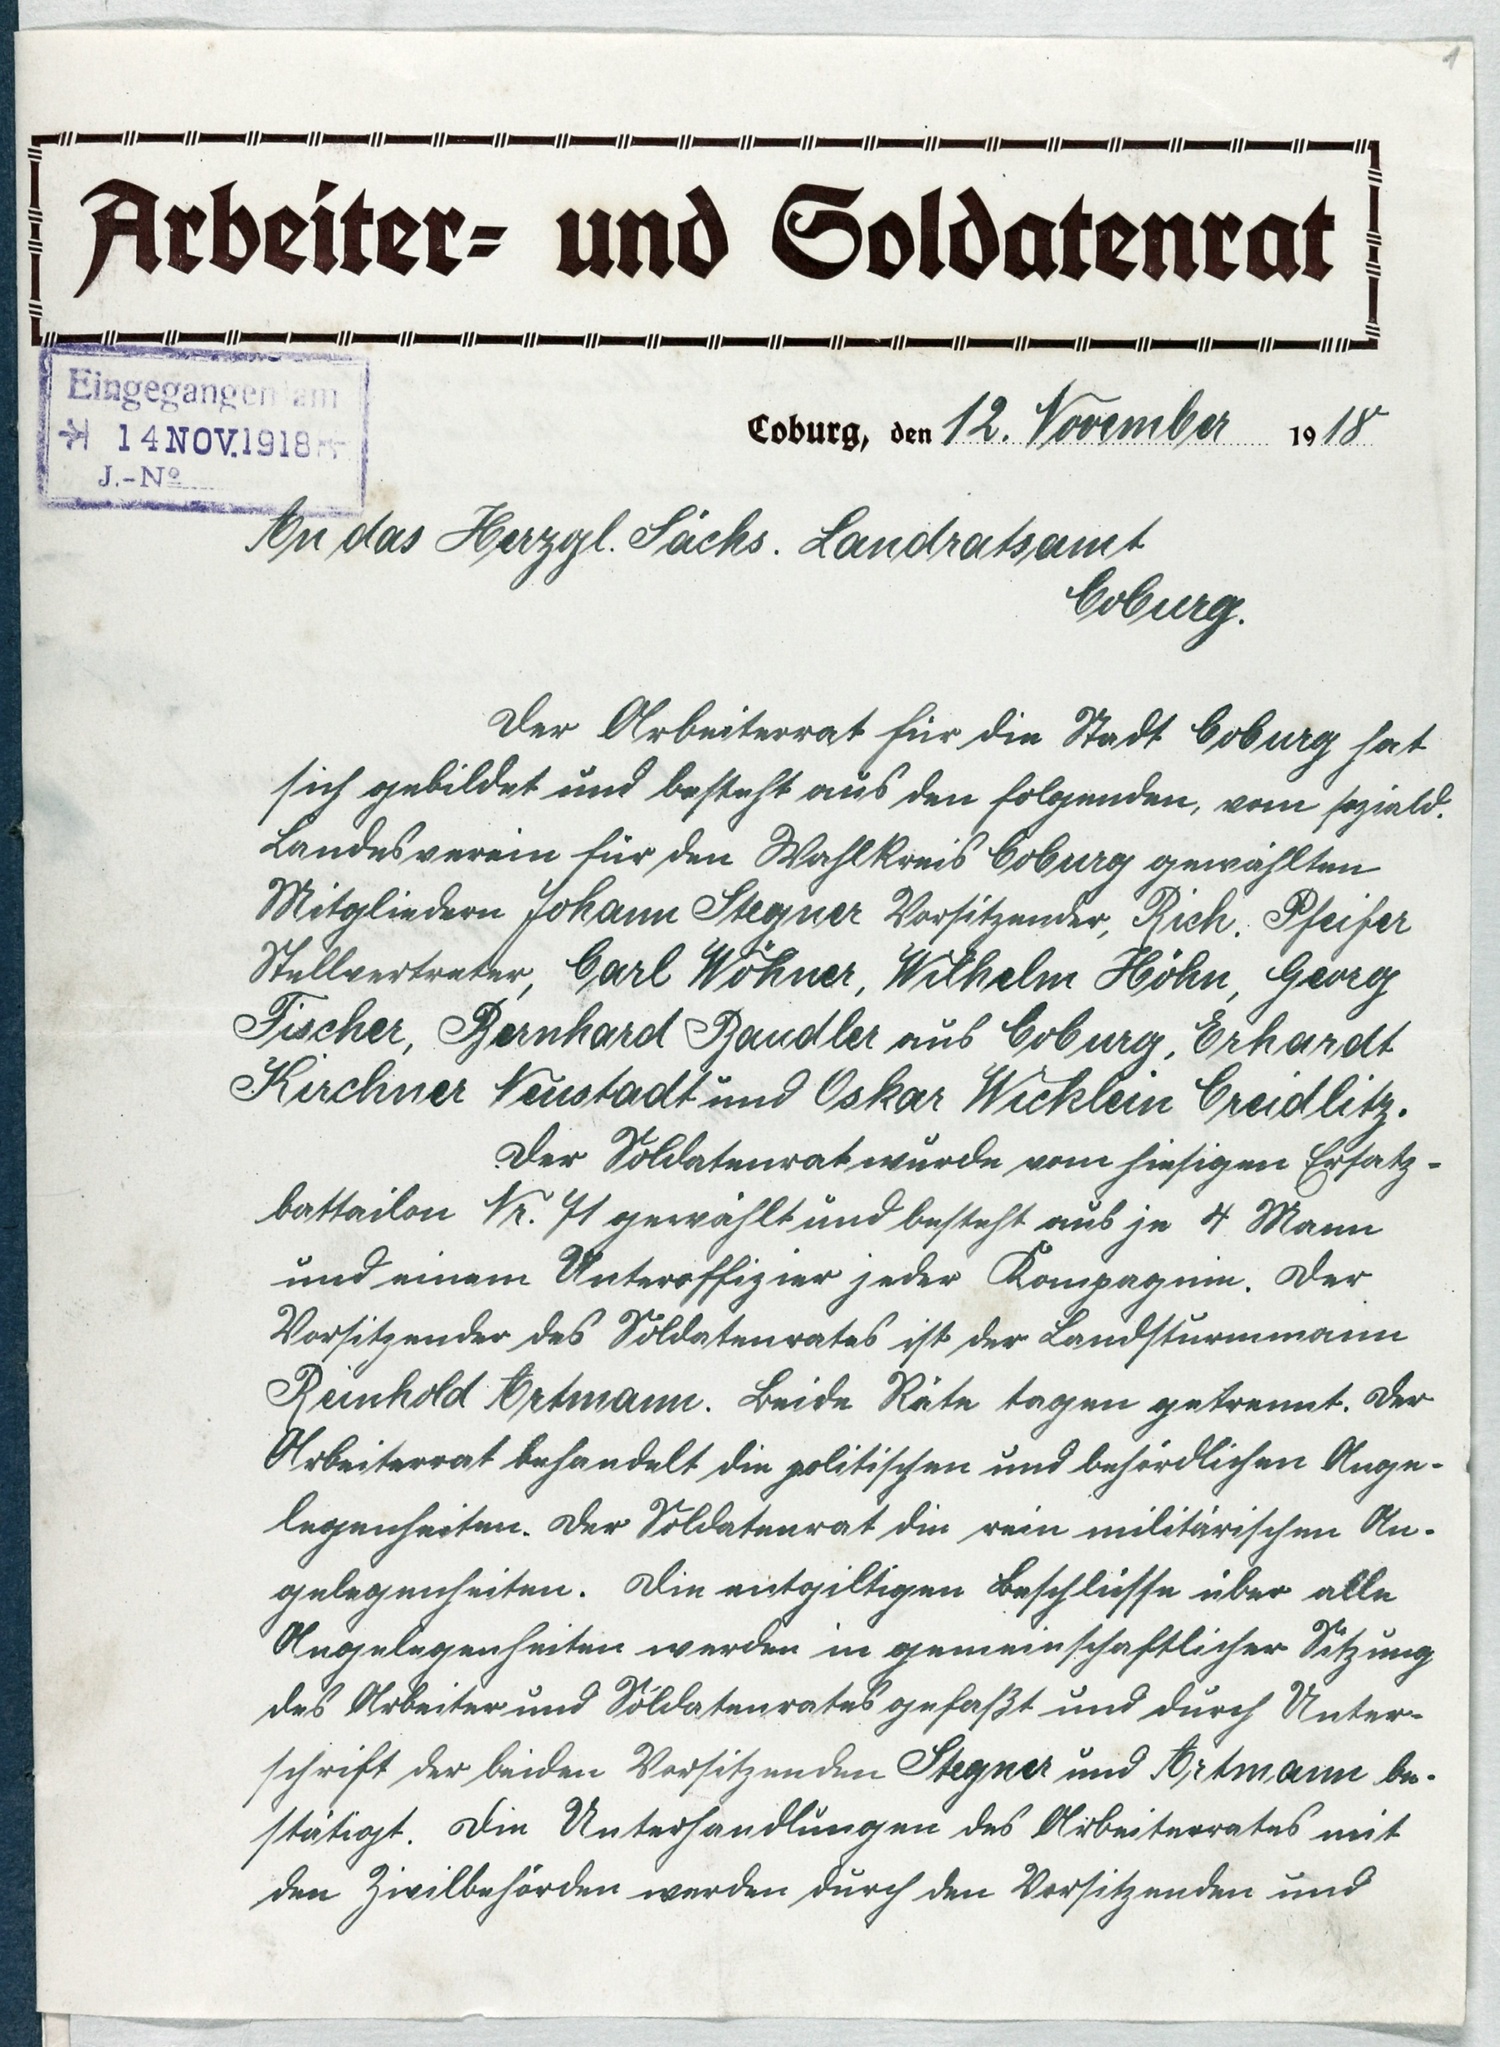 1
Arbeiter= und Soldatenrat
Eingegangen am
14 NOV. 1918
J.-Nº
Coburg, den 12. November 1918
An das Herzgl. Sächs. Landratsamt
Coburg.
Der Arbeiterrat für die Stadt Coburg hat
sich gebildet und besteht aus den folgenden, vom soziald.
Landesverein für den Wahlkreis Coburg gewählten
Mitgliedern Johann Stegner Vorsitzender, Rich. Pfeifer
Stellvertreter, Carl Wöhner, Wilhelm Höhn, Georg
Fischer, Bernhard Baudler aus Coburg, Erhardt
Kirchner Neustadt und Oskar Wicklein Creidlitz.
Der Soldatenrat wurde vom hiesigen Ersatz-
battailon Nr. 71 gewählt und besteht aus je 4 Mann
und einem Unteroffizier jeder Kompagnie. Der
Vorsitzender des Soldatenrates ist der Landsturmmann
Reinhold Artmann. Beide Räte tagen getrennt. Der
Arbeiterrat behandelt die politischen und behördlichen Ange-
legenheiten. Der Soldatenrat die rein militärischen An-
gelegenheiten. Die entgiltigen Beschlüsse über alle
Angelegenheiten werden in gemeinschaftlicher Sitzung
des Arbeiter und Soldatenrates gefaßt und durch Unter-
schrift der beiden Vorsitzenden Stegner und Artmann be-
stätigt. Die Unterhandlungen des Arbeiterrates mit
den Zivilbehörden werden durch den Vorsitzenden und